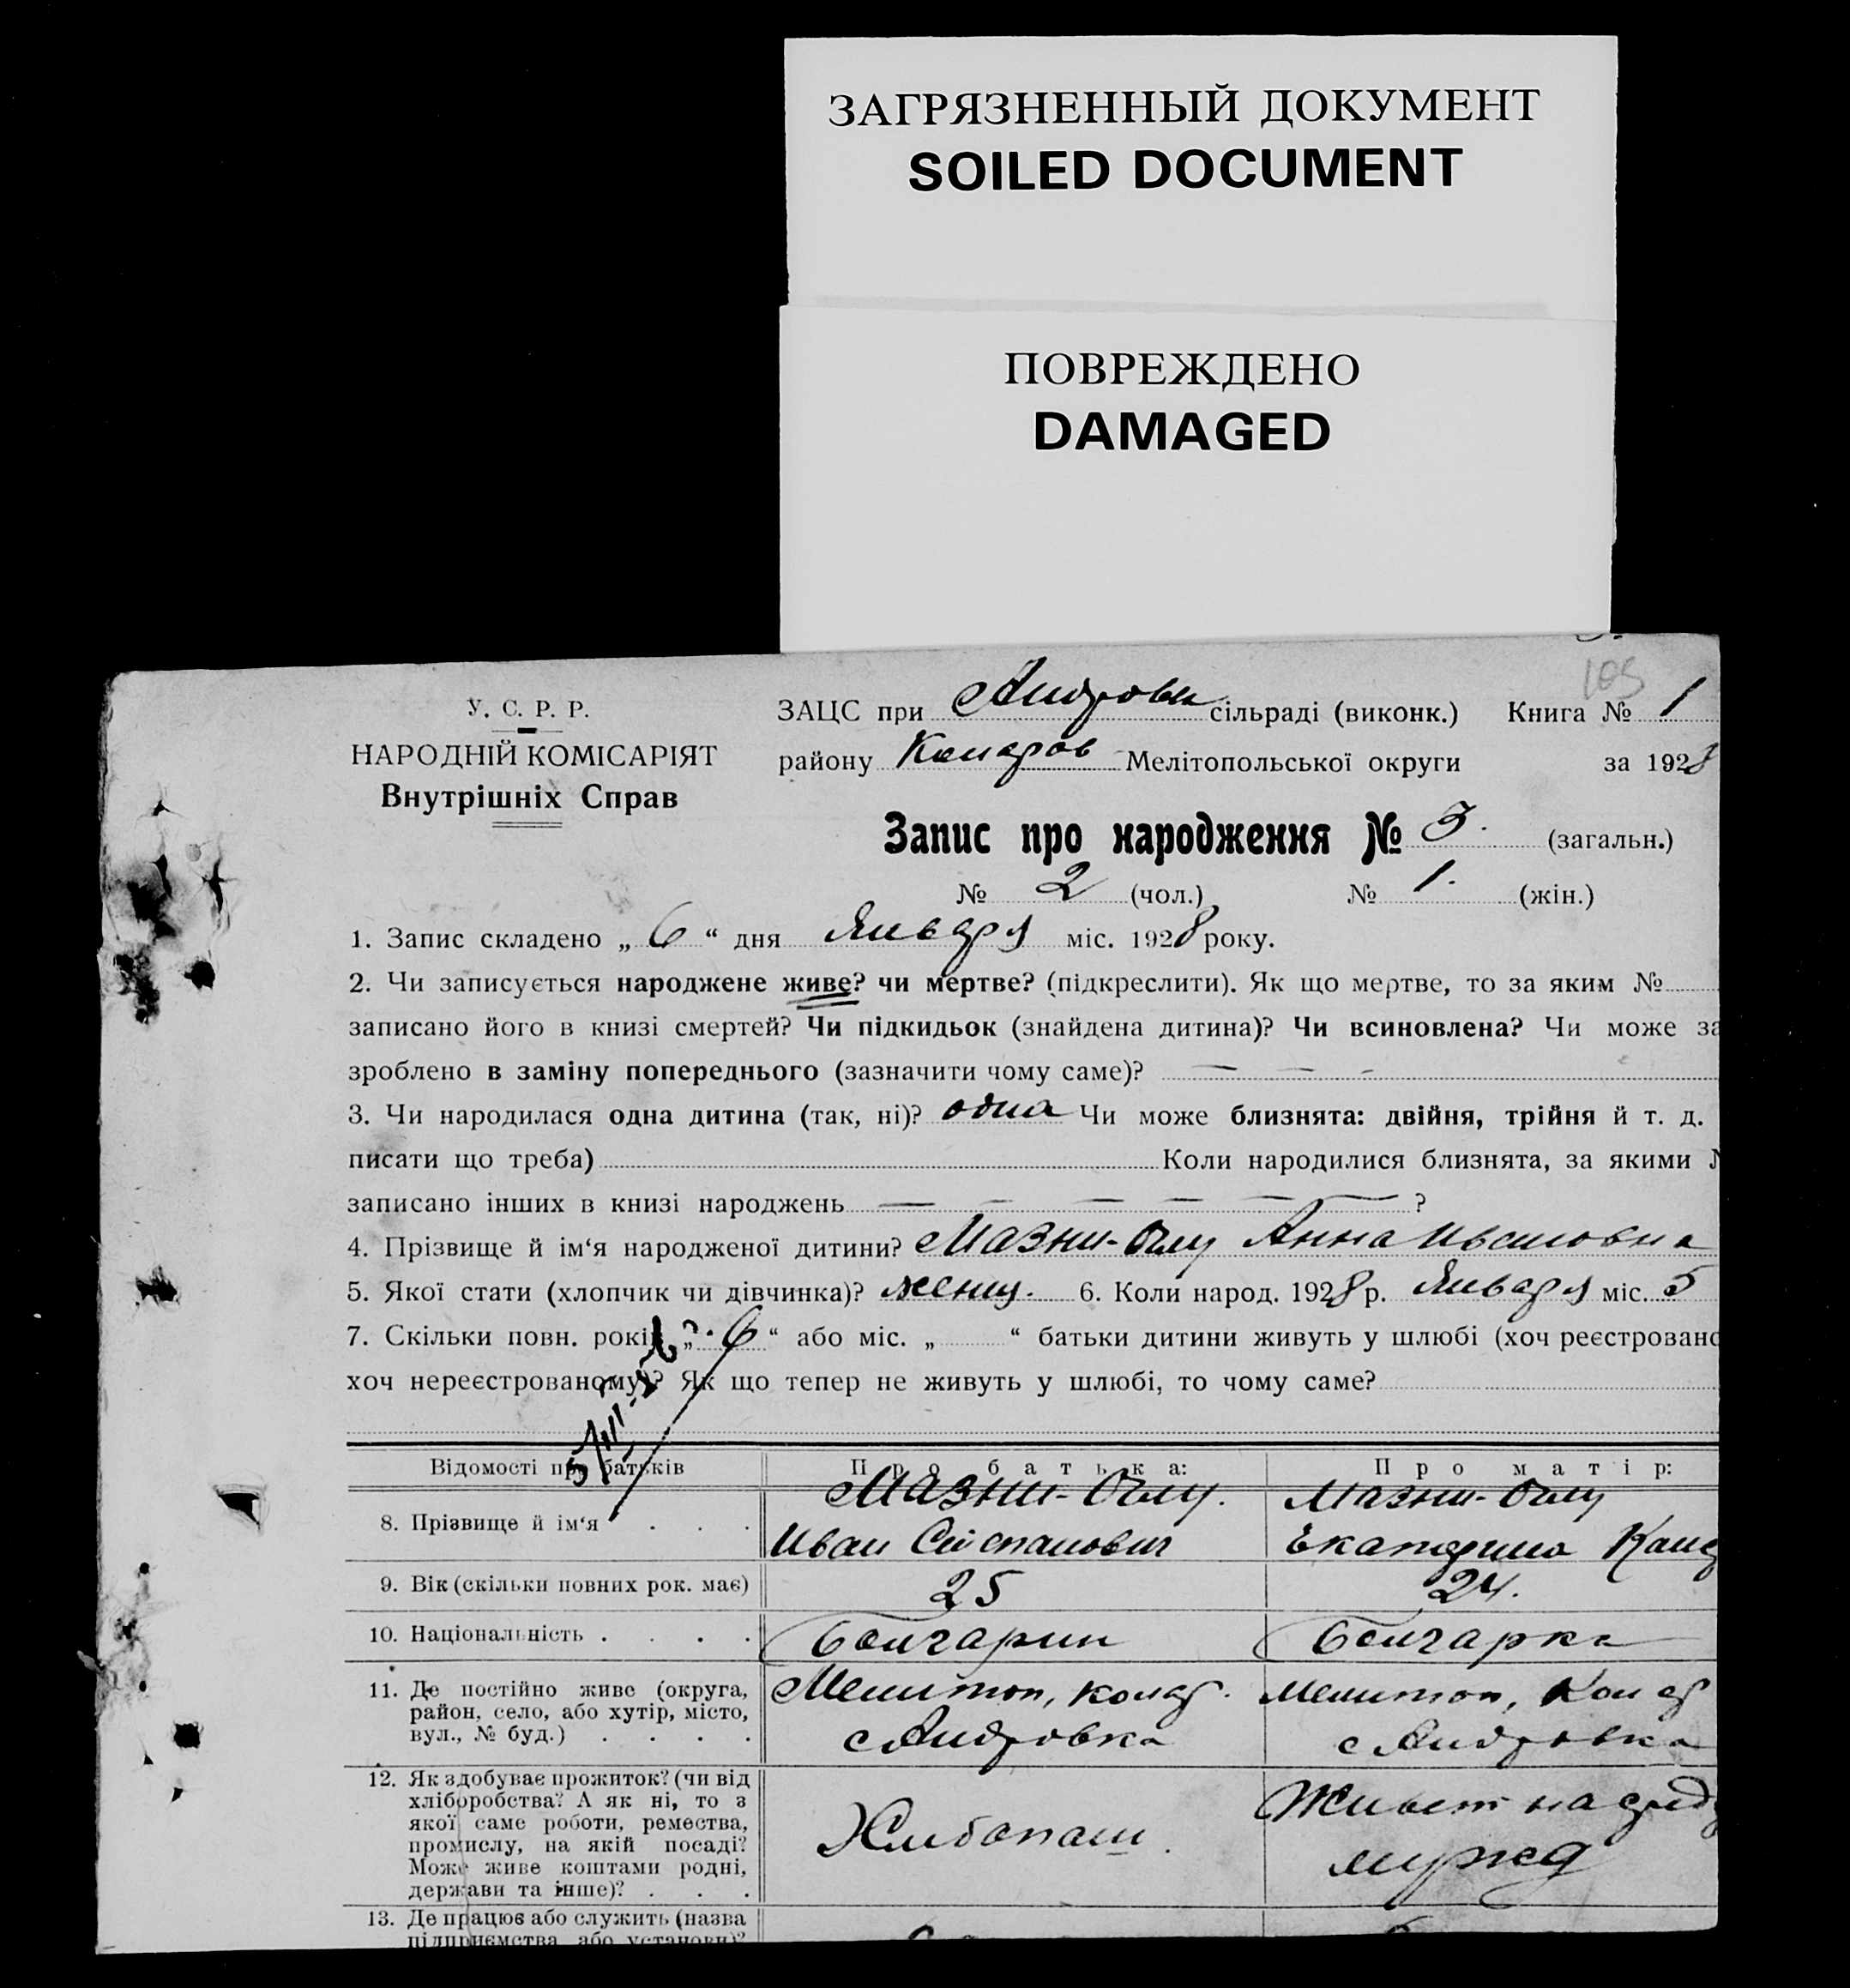 ЗАГРЯЗНЕННЫЙ ДОКУМЕНТ
SOILED DOCUMENT
ПОВРЕЖДЕНО
DAMAGED
105
У. С. Р. Р.
НАРОДНІЙ КОМІСАРІЯТ
Внутрішніх Справ
ЗАЦС при Андровск сільраді (виконк.) Книга № 1
району Комаров Мелітопольської округи за 1928
Запис про народження № 3. (загальн.)
№ 2 (чол.) № 1. (жін.)
1. Запис складено „ 6 “ дня Января міс. 1928 року.
2. Чи записується народжене живе? чи мертве? (підкреслити). Як що мертве, то за яким №
записано його в книзі смертей? Чи підкидьок (знайдена дитина)? Чи всиновлена? Чи може за
зроблено в заміну попереднього (зазначити чому саме)? — — -
3. Чи народилася одна дитина (так, ні)? одна Чи може близнята: двійня, трійня й т. д.
писати що треба) Коли народилися близнята, за якими
записано інших в книзі народжень — — — — — — ?
4. Прізвище й ім‘я народженої дитини? Мазни-Оглу Анна Ивановна
5. Якої стати (хлопчик чи дівчинка)? женщ. 6. Коли народ. 1928 р. Января міс. 5
7. Скільки повн. років „ 6 “ або міс. „ “ батьки дитини живуть у шлюбі (хоч реєстровано
хоч нереєстрованому)? Як що тепер не живуть у шлюбі, то чому саме?
Відомості про батьків Про батька: Про матір:
8. Прізвище й ім‘я . . . Мазни-Оглу. Мазни-Оглу
Иван Степанович Екатерина
9. Вік (скільки повних рок. має) 25 24.
10. Національність . . . . Болгарин Болгарка
11. Де постійно живе (округа, Мелитоп, Комар. Мелитоп, Комар
район, село, або хутір, місто, с Андровка с Андровка
вул., № буд.) . . . .
12. Як здобуває прожиток? (чи від
хліборобства? А як ні, то з
якої саме роботи, ремества,
промислу, на якій посаді?
Може живе коштами родні,
держави та інше)? . . .
Хлибопаш.
Живет на сред
мужа
13. Де працює або служить (назва
підприємства або установи)?